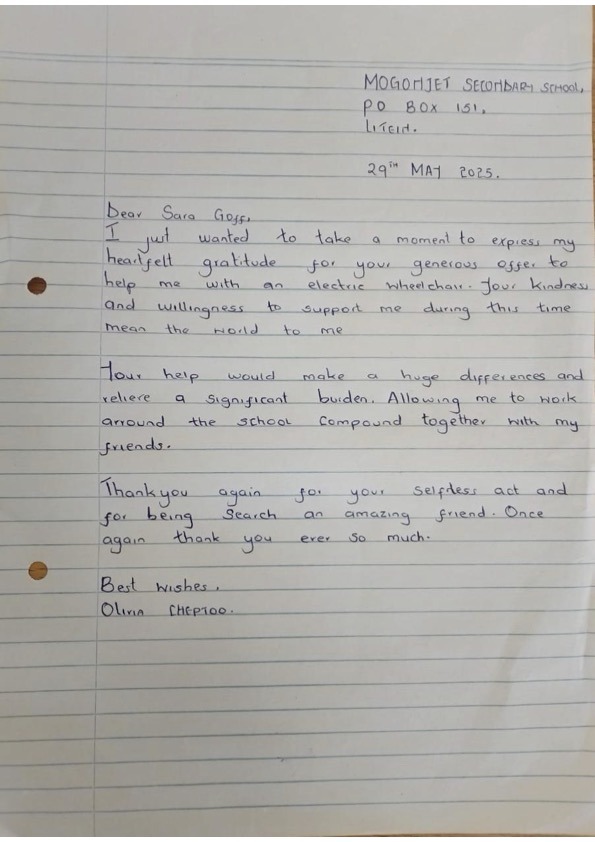 MOGONJET SECONDARY SCHOOL,
PO BOX 151,
LITEIN.
29TH MAY 2025.
Dear Sara Goss,
I just wanted to take a moment to express my
heartfelt gratitude for your generous offer to
help me with an electric wheelchair. Your kindness
and willingness to support me during this time
mean the world to me
Your help would make a huge differences and
relieve a significant burden. Allowing me to work
arround the school compound together with my
friends.
Thankyou again for your selfless act and
for being search an amazing friend. Once
again thank you ever so much.
Best wishes,
Olivia CHEPTOO.